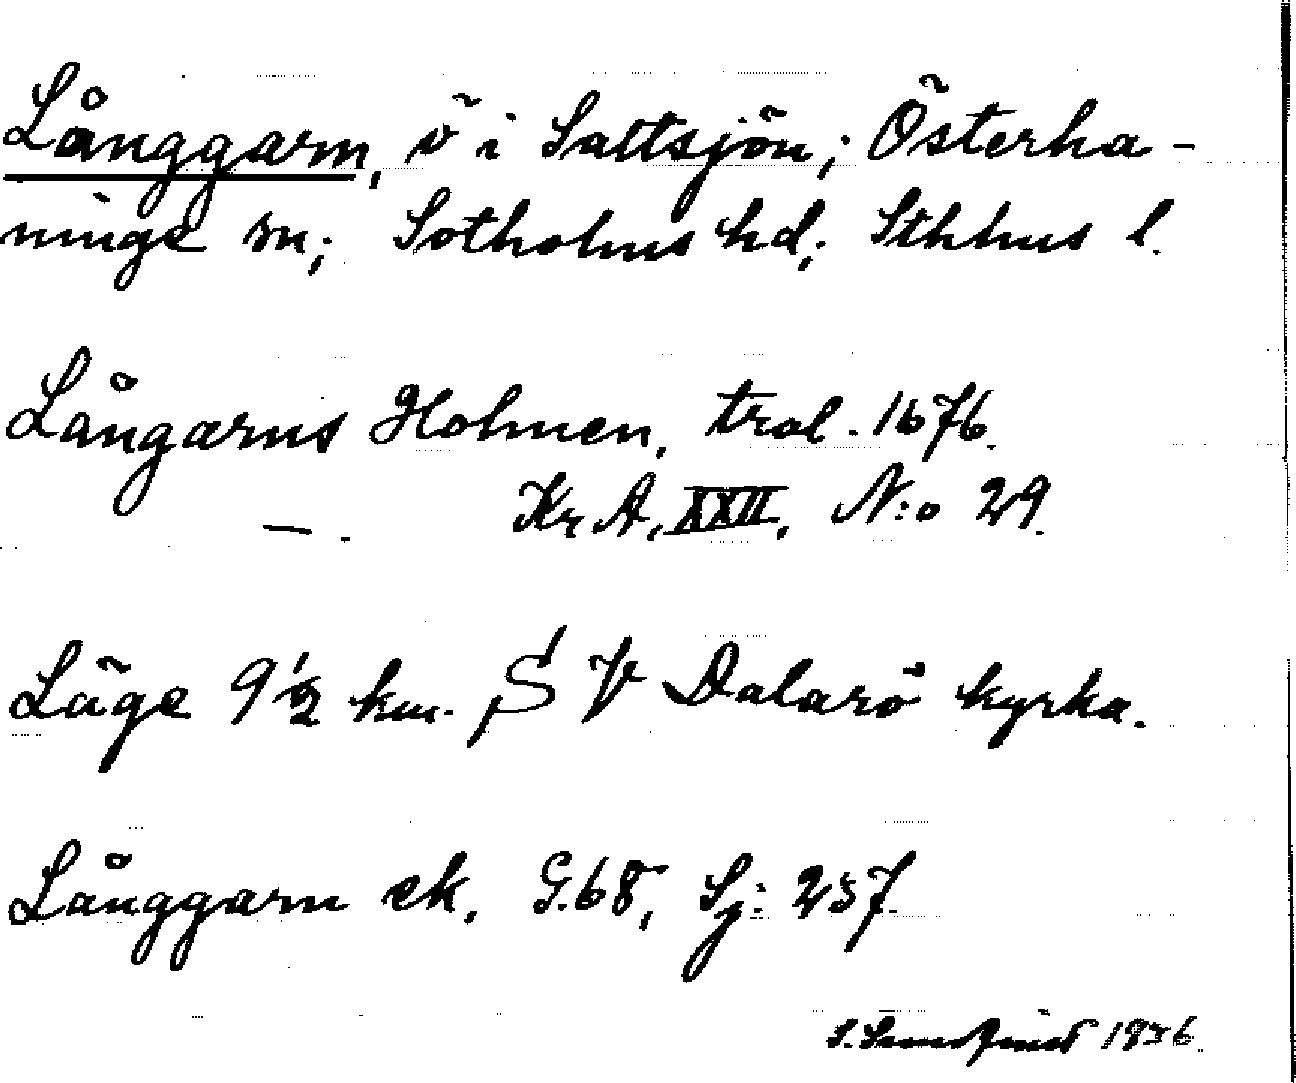 Långgarn, ö i Saltsjön; Österha-
ninge sn; Sotholms hd; Sthlms l.
Långarns Holmen, trol. 1676.
— . Kr A, XXII, N:o 29.
Läge 9 1/2 km. S V Dalarö kyrka.
Långgarn ek. G.68, Sj: 257.
1936.